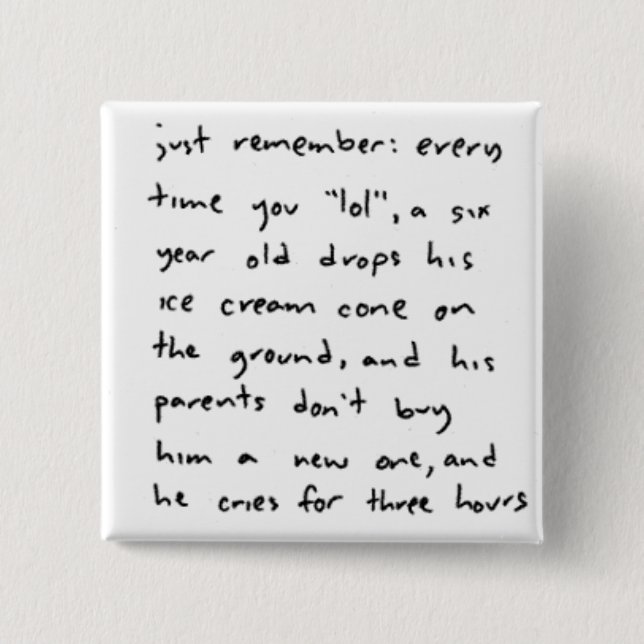 just remember: every
time you "lol", a six
year old drops his
ice cream cone on
the ground, and his
parents don't buy
him a new one, and
he cries for three hours